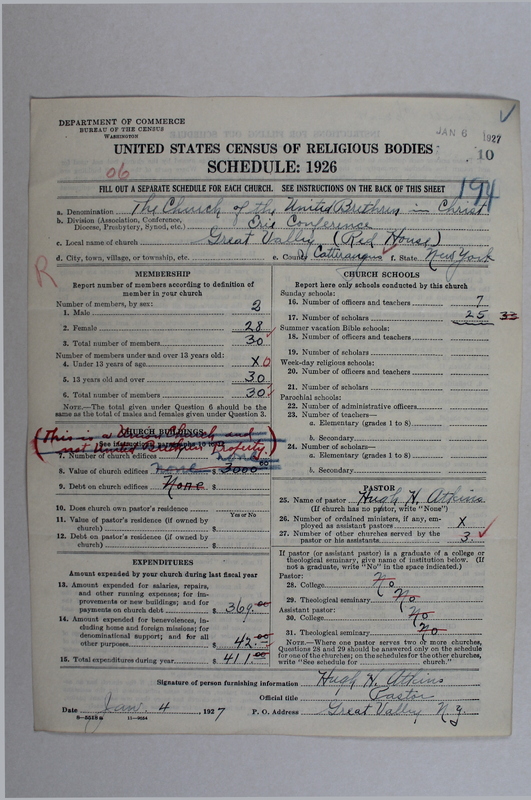 DEPARTMENT OF COMMERCE
BUREAU OF THE CENSUS
WASHINGTON
JAN 6 1927
UNITED STATES CENSUS OF RELIGIOUS BODIES
10
SCHEDULE: 1926
06
FILL OUT A SEPARATE SCHEDULE FOR EACH CHURCH. SEE INSTRUCTIONS ON THE BACK OF THIS SHEET
194
a. Denomination The Church of the United Brethren in Christ
b. Division (Association, Conference, Diocese, Presbytery, Synod, etc.) Erie Conference
c. Local name of church Great Valley (Red House)
d. City, town, village, or township, etc. e. County Cattaraugus f. State New York
R
MEMBERSHIP
Report number of members according to definition of member in your church
Number of members, by sex:
1. Male 2
2. Female 28
3. Total number of members 30
Number of members under and over 13 years old:
4. Under 13 years of age X 0
5. 13 years old and over 30
6. Total number of members 30
NOTE.—The total given under Question 6 should be the same as the total of males and females given under Question 3.
CHURCH BUILDINGS
(This is a Union Church and not United Brethren Property.)
7. Number of church edifices none
8. Value of church edifices none $ 3000 00
9. Debt on church edifices None $
10. Does church own pastor's residence?
Yes or No
11. Value of pastor's residence (if owned by church) $
12. Debt on pastor's residence (if owned by church) $
EXPENDITURES
Amount expended by your church during last fiscal year
13. Amount expended for salaries, repairs, and other running expenses; for improvements or new buildings; and for payments on church debt $ 369.00
14. Amount expended for benevolences, including home and foreign missions; for denominational support; and for all other purposes $ 42.—
15. Total expenditures during year $ 411 00
CHURCH SCHOOLS
Report here only schools conducted by this church
Sunday schools:
16. Number of officers and teachers 7
17. Number of scholars 25 33
Summer vacation Bible schools:
18. Number of officers and teachers
19. Number of scholars
Week-day religious schools:
20. Number of officers and teachers
21. Number of scholars
Parochial schools:
22. Number of administrative officers
23. Number of teachers—
a. Elementary (grades 1 to 8)
b. Secondary
24. Number of scholars—
a. Elementary (grades 1 to 8)
b. Secondary
PASTOR
25. Name of pastor Hugh H. Atkins
(If church has no pastor, write "None")
26. Number of ordained ministers, if any, employed as assistant pastors X
27. Number of other churches served by the pastor or his assistants 3
If pastor (or assistant pastor) is a graduate of a college or theological seminary, give name of institution below. (If not a graduate, write "No" in the space indicated.)
Pastor:
28. College No
29. Theological seminary No
Assistant pastor:
30. College No
31. Theological seminary No
NOTE.—Where one pastor serves two or more churches, Questions 28 and 29 should be answered only on the schedule for one of the churches; on the schedules for the other churches, write "See schedule for church."
Signature of person furnishing information Hugh H. Atkins
Official title Pastor
Date Jan. 4, 1927 P. O. Address Great Valley N.Y.
11—9054